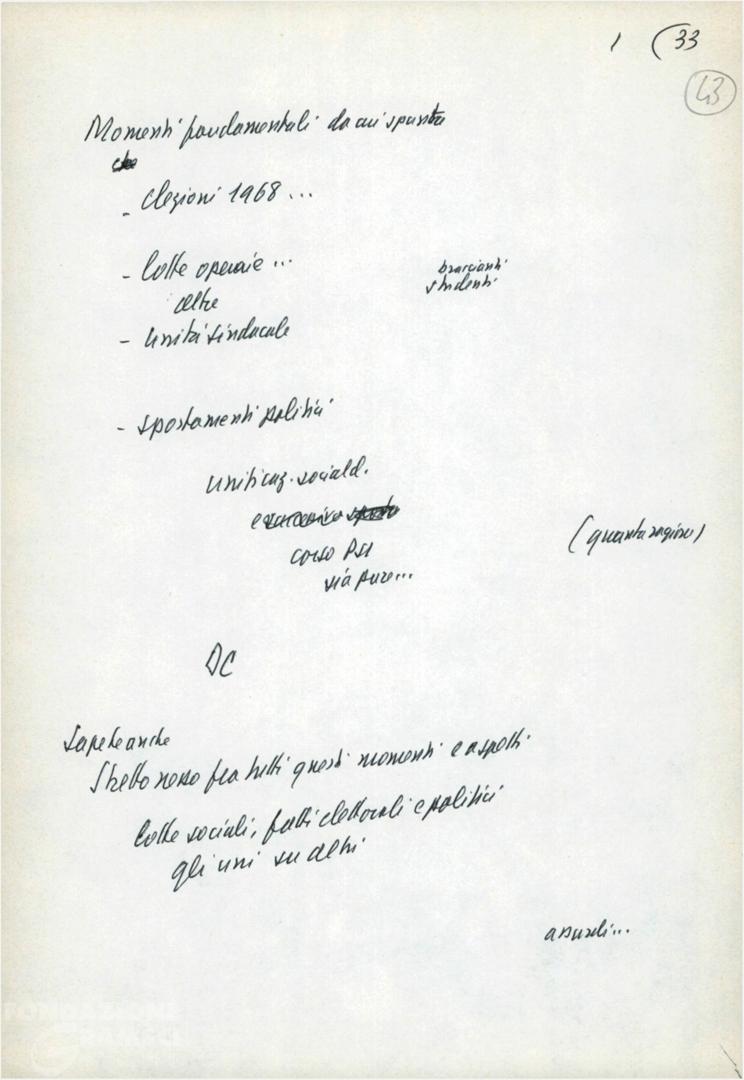 1 (33
43
Momenti fondamentali da cui
che
- Elezioni 1968 ...
- Lotte operaie ...
braccianti
studenti
altre
- Unità sindacale
- Spostamenti politici
Unificaz. sociald.
e
corso PSI
sia pure...
(quanta ragione)
DC
Sapete anche
Stretto nesso fra tutti questi momenti e aspetti
Lotte sociali, fatti elettorali e politici
gli uni su altri
FONDAZIONE
GRAMSCI